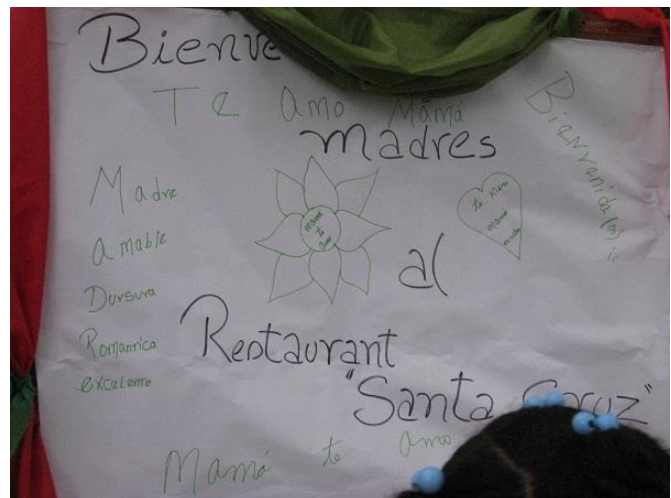 Bienve
Te Amo Mamá
madres
Bienvenida(os)
Madre
amable
Dursura
Romanrica
excelente
Mamá
te
amo
te kiero
mama
mucho
al
Restaurant
"Santa Cruz"
Mamá te amo